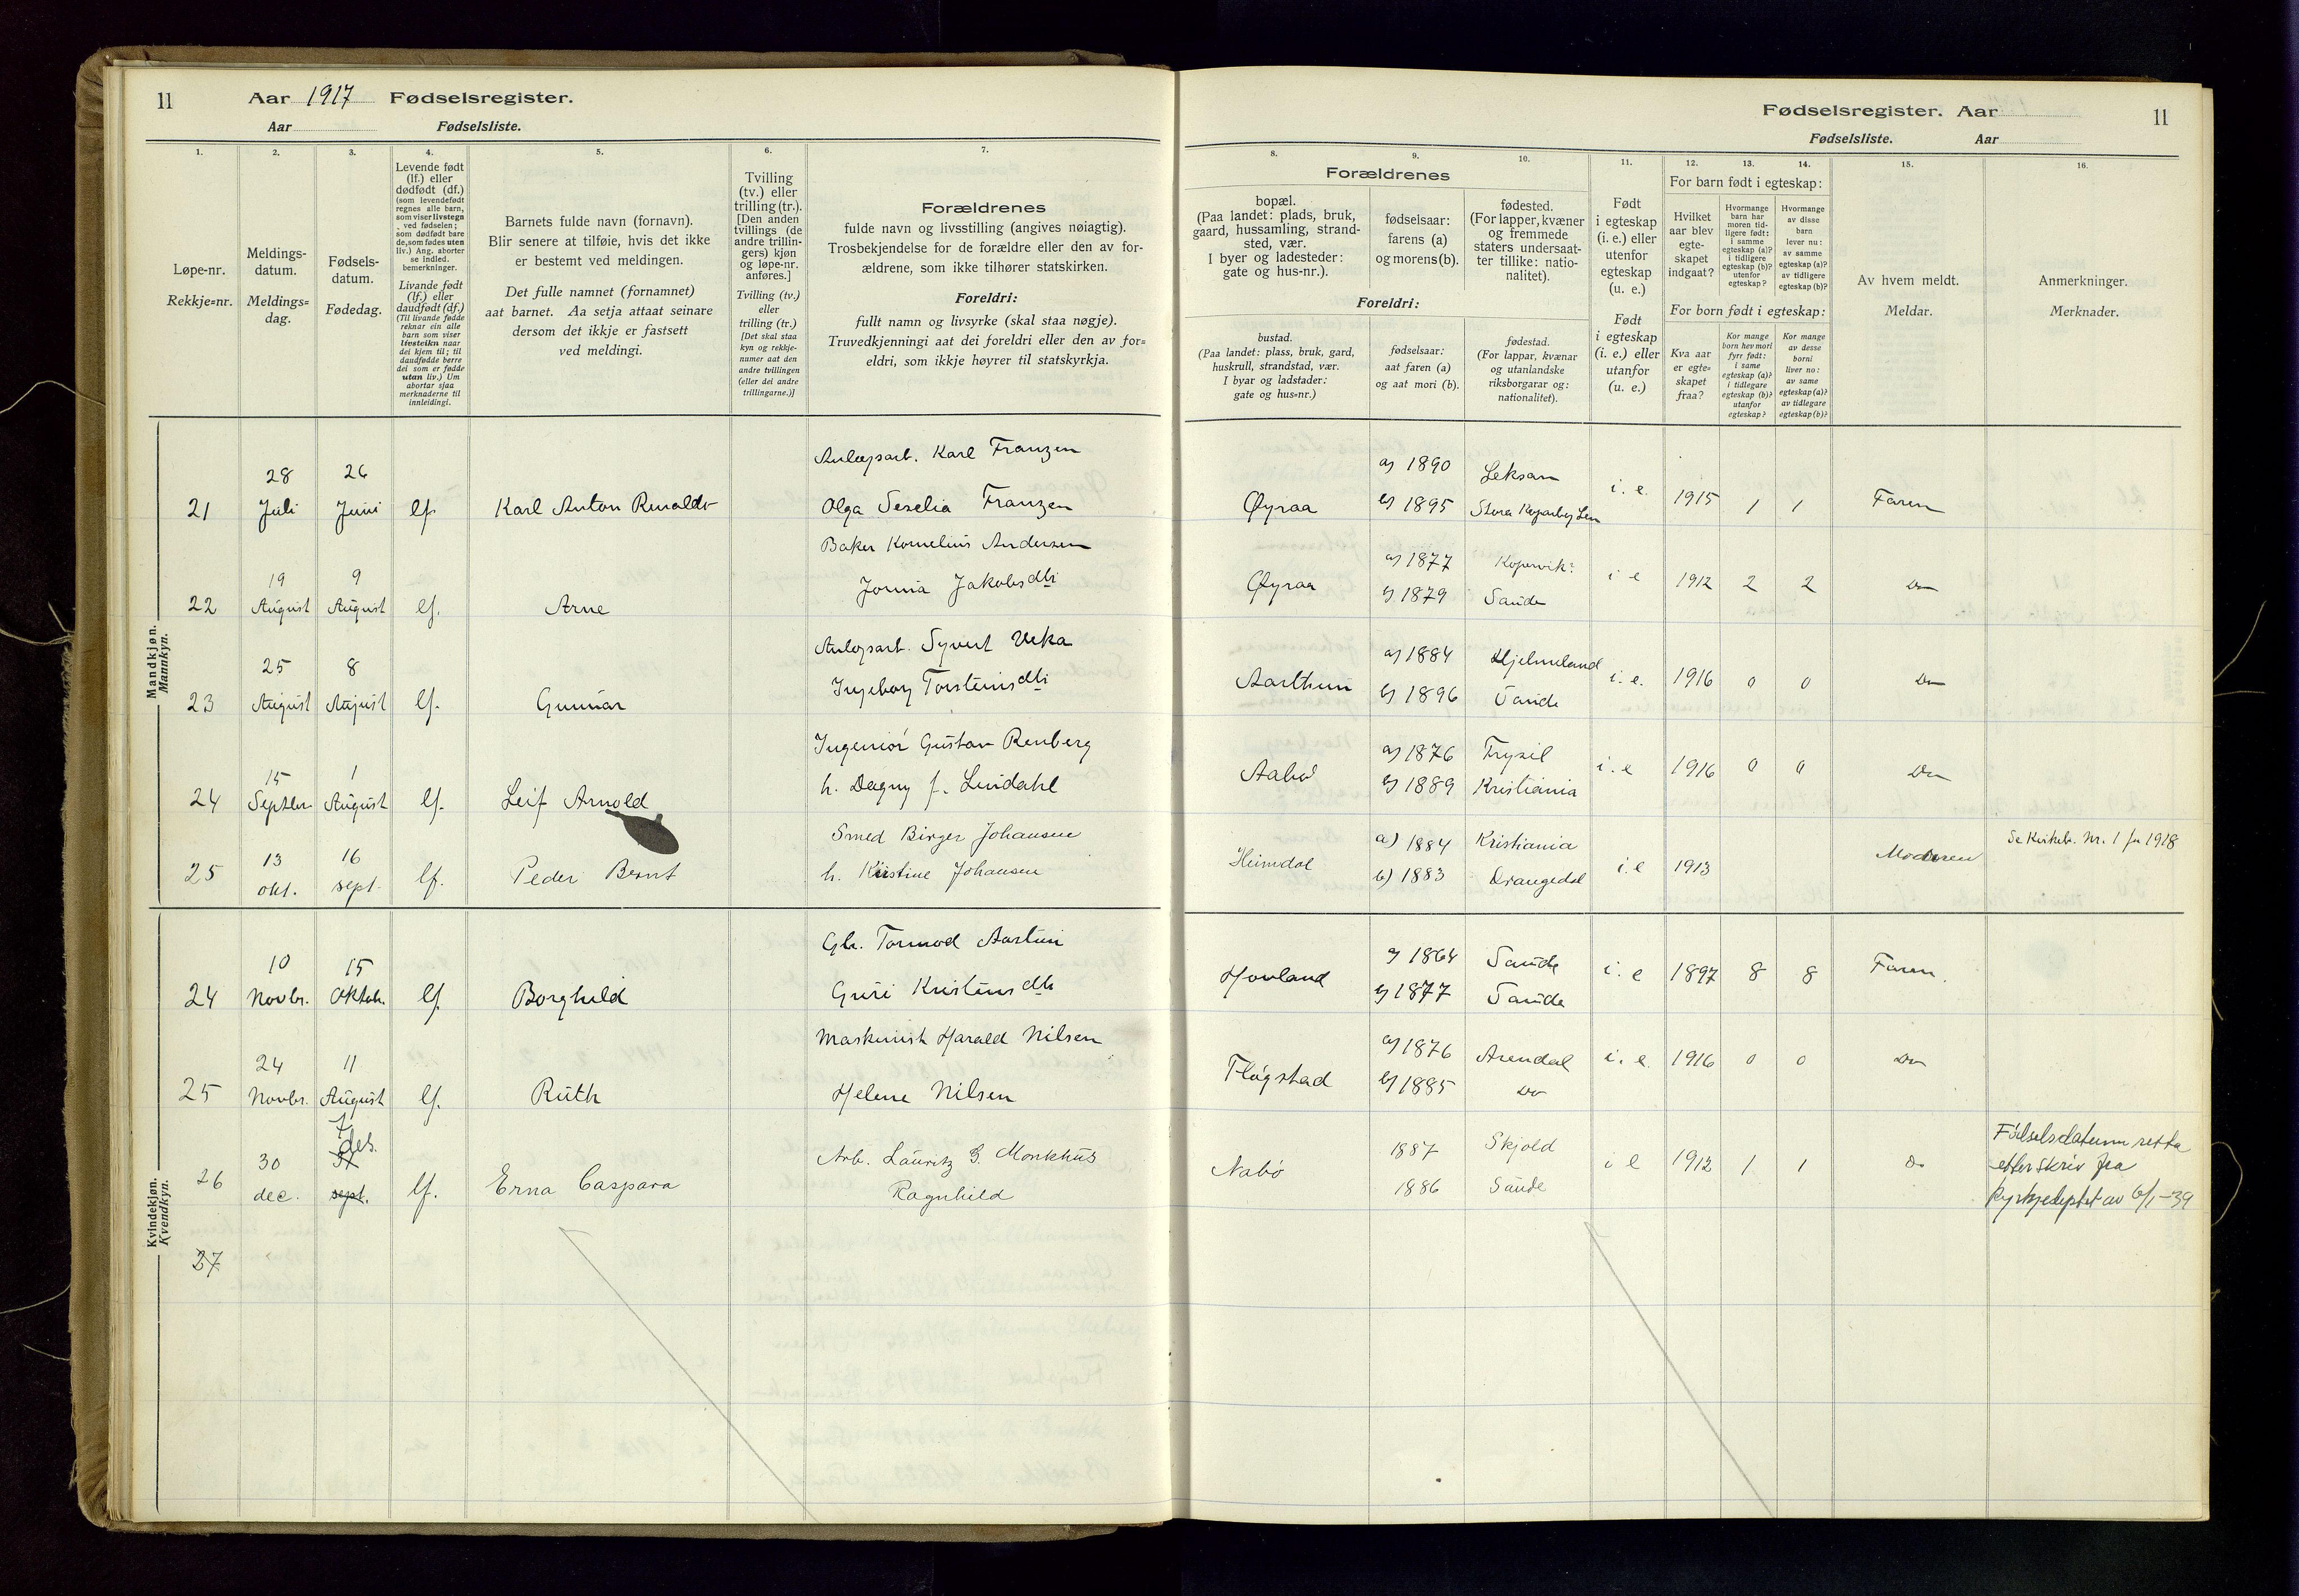 11 Aar 1917 Fødselsregister.
Aar Fødselsliste.
1.
2.
3.
4.
5.
6.
7.
Løpe-nr.
Rekkje=nr.
Meldings-
datum.
Meldings=
dag.
Fødsels-
datum.
Fødedag.
Levende født
(lf.) eller
dødfødt (df.)
(som levendefødt
regnes alle barn,
som viser livstegn
ved fødselen;
som dødfødt bare
de, som fødes uten
liv.) Ang. aborter
se indled.
bemerkninger.
Livande født
(lf.) eller
daudfødt (df.)
(Til livande fødde
reknar ein alle
barn som viser
livsteikn naar
dei kjem til; til
daudfødde berre
dei som er fødde
utan liv.) Um
abortar sjaa
merknaderne til
innleidingi.
Barnets fulde navn (fornavn).
Blir senere at tilføie, hvis det ikke
er bestemt ved meldingen.
Det fulle namnet (fornamnet)
aat barnet. Aa setja attaat seinare
dersom det ikkje er fastsett
ved meldingi.
Tvilling
(tv.) eller
trilling (tr.).
[Den anden
tvillings (de
andre trillin-
gers) kjøn
og løpe-nr.
anføres.]
Tvilling (tv.)
eller
trilling (tr.)
[Det skal staa
kyn og rekkje-
numer aat den
andre tvillingen
(eller dei andre
trillingarne.)]
Forældrenes
fulde navn og livsstilling (angives nøiagtig).
Trosbekjendelse for de forældre eller den av for-
ældrene, som ikke tilhører statskirken.
Foreldri:
fullt namn og livsyrke (skal staa nøgje).
Truvedkjenningi aat dei foreldri eller den av for=
eldri, som ikkje høyrer til statskyrkja.
Mandkjøn.
Mannkyn.
21
28
Juli
26
Juni
lf.
Karl Anton
Karl Franzen
Olga Seselia Franzen
22
19
August
9
August
lf.
Arne
Baker Kornelius Andersen
Jakobsdtr
23
25
August
8
August
lf.
Gunnar
Syvert Veka
Ingeborg Torsteinsdtr
24
15
Septbr
1
August
lf.
Leif Arnold
Ingeniør Gustav Renberg
h. Dagny f. Lindahl
25
13
okt.
16
sept.
lf.
Peder Bernt
Smed Birger Johansen
h. Kristine Johansen
Kvindekjøn.
Kvendkyn.
24
10
Novbr.
15
Oktob.
lf.
Borghild
Gbr. Tormod Aartun
Guri Kristensdtr
25
24
Novbr.
11
August
lf.
Ruth
Maskinist Harald Nilsen
Helene Nilsen
26
30
dec.
7
des.
31
sept.
lf.
Erna Caspara
Arb. Lauritz G. Monkhus
Ragnhild
27
Fødselsregister. Aar 11
Fødselsliste. Aar
8.
9.
10.
11.
12.
13.
14.
15.
16.
Forældrenes
bopæl.
(Paa landet: plads, bruk,
gaard, hussamling, strand-
sted, vær.
I byer og ladesteder:
gate og hus-nr.).
fødselsaar:
farens (a)
og morens (b).
fødested.
(For lapper, kvæner
og fremmede
staters undersaat-
ter tillike: natio-
nalitet).
Foreldri:
bustad.
(Paa landet: plass, bruk, gard,
huskrull, strandstad, vær.
I byar og ladstader:
gate og hus=nr.)
fødselsaar:
aat faren (a)
og aat mori (b).
fødestad.
(For lappar, kvænar
og utanlandske
riksborgarar og:
nationalitet).
Født
i egteskap
(i. e.) eller
utenfor
egteskap
(u. e.)
Født
i egteskap
(i. e.) eller
utanfor
(u. e.)
For barn født i egteskap:
Hvilket
aar blev
egte-
skapet
indgaat?
Hvormange
barn har
moren tid-
ligere født:
i samme
egteskap (a)?
i tidligere
egteskap (b)?
utenfor
egteskap?
Hvormange
av disse
barn
lever nu:
av samme
egteskap (a)?
av tidligere
egteskap (b)?
For born født i egteskap:
Kva aar
er egte=
skapet
fraa?
Kor mange
born hev mori
fyrr født:
i same
egteskap (a)?
i tidlegare
egteskap (b)?
utanfor
egteskap?
Kor mange
av desse
borni
liver no:
av same
egteskap (a)?
av tidlegare
egteskap (b)?
Av hvem meldt.
Meldar.
Anmerkninger.
Merknader.
Øyraa
a) 1890
b) 1895
Leksan
Stora
i. e.
1915
1
1
Faren
Øyraa
a) 1877
b) 1879
Kopervik
Sande
i e
1912
2
2
Do
Aarthun
a) 1884
b) 1896
Hjelmeland
Sande
i. e.
1916
0
0
Do
Aabø
a) 1876
b) 1889
Trysil
Kristiania
i. e
1916
0
0
Do
Heimdal
a) 1884
b) 1883
Kristiania
Drangedal
i. e
1913
Moderen
Se Kirkeb. Nr. 1 for 1918
Hovland
a) 1864
b) 1877
Sande
Sande
i. e
1897
8
8
Faren.
Fløgstad
a) 1876
b) 1885
Arendal
Do
i. e.
1916
0
0
Do
Nabø
1887
1886
Skjold
Sande
i e
1912
1
1
Do
Fødselsdatum retta
etter skriv fra
Kyrkjedeptet av 6/1-39